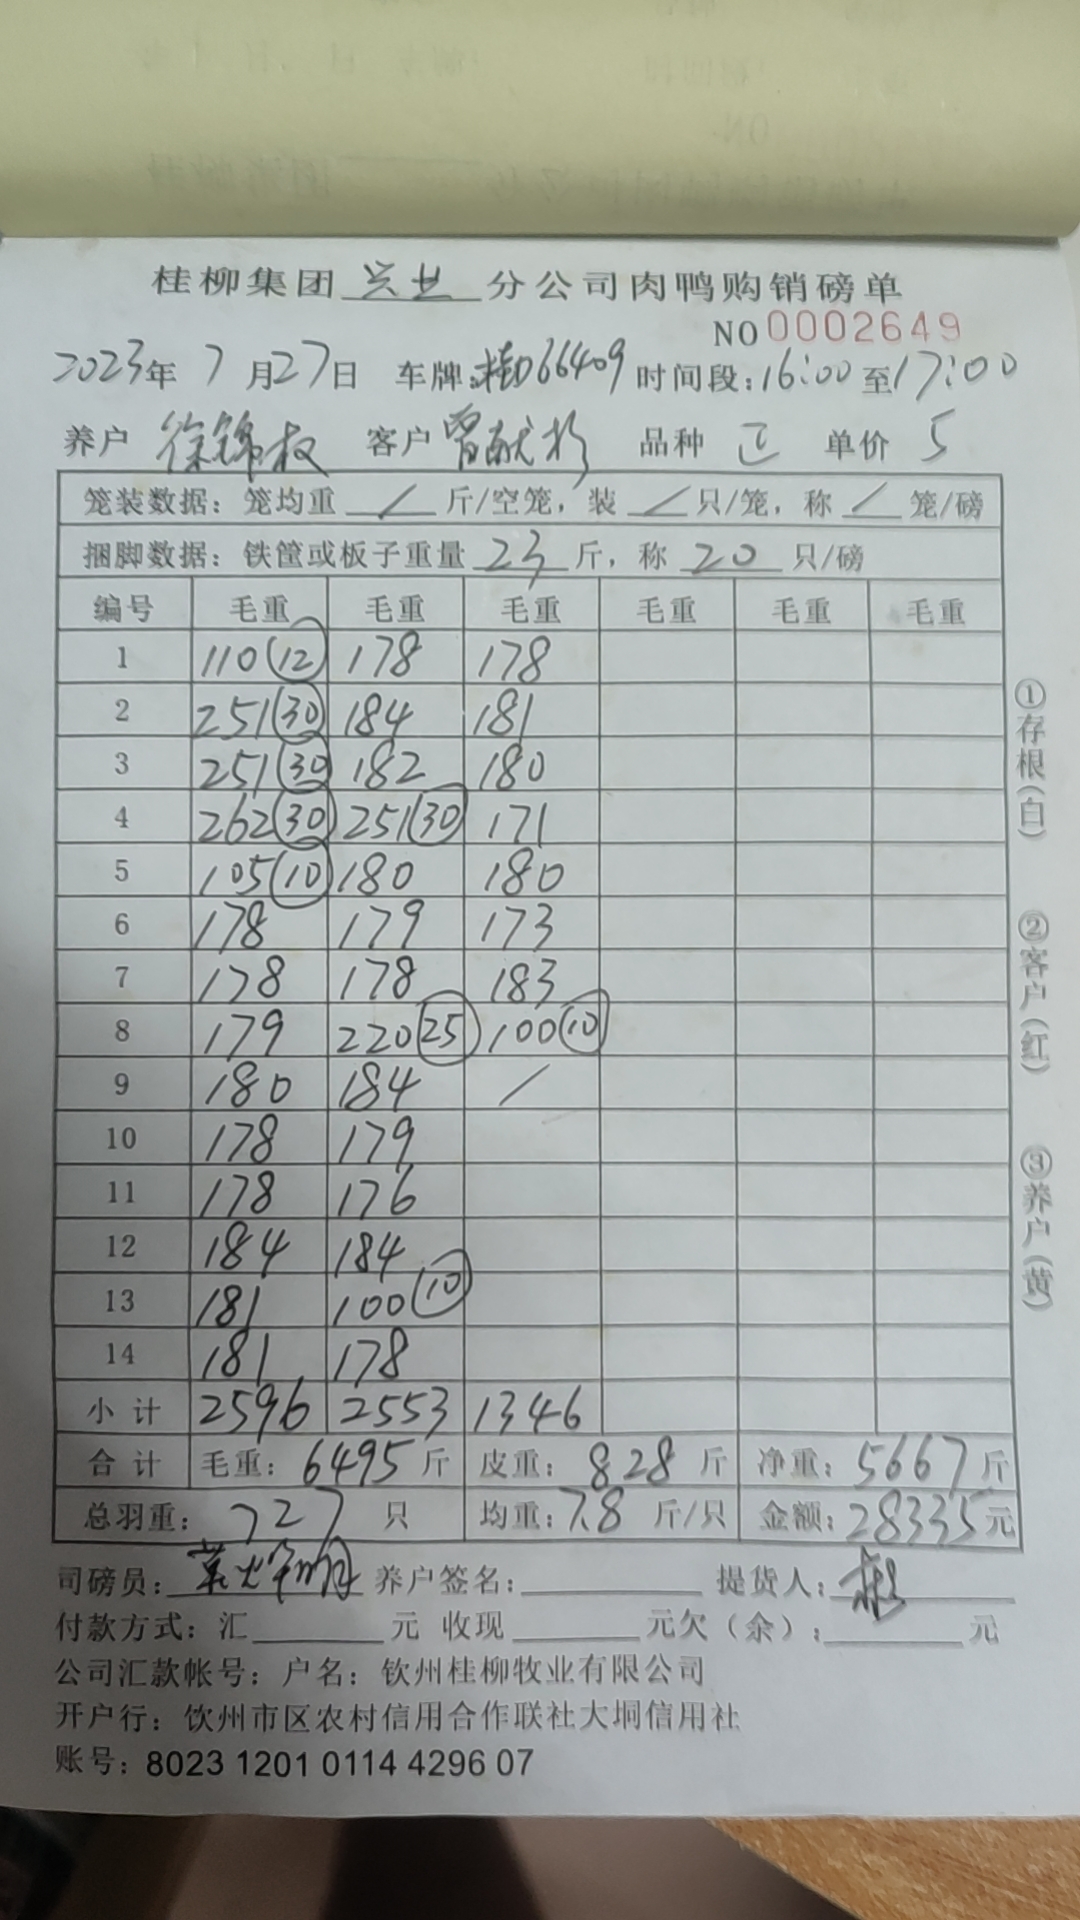 桂柳集团 兴业 分公司肉鸭购销磅单
NO 0002649
2023年 7月27日 车牌:桂D66409 时间段:16:00至17:00
养户 徐锦权 客户 曾献杉 品种 正 单价 5
笼装数据: 笼均重 / 斤/空笼, 装 / 只/笼, 称 / 笼/磅
捆脚数据: 铁筐或板子重量 23 斤, 称 20 只/磅
编号 毛重 毛重 毛重 毛重 毛重 毛重
1 110(12) 178 178
2 251(30) 184 181
3 251(30) 182 180
4 262(30) 251(30) 171
5 105(10) 180 180
6 178 179 173
7 178 178 183
8 179 220(25) 100(10)
9 180 184 /
10 178 179
11 178 176
12 184 184
13 181 100(10)
14 181 178
小计 2596 2553 1346
合计 毛重: 6495斤 皮重: 828斤 净重: 5667斤
总羽重: 727 只 均重: 7.8 斤/只 金额: 28335元
司磅员: 养户签名: 提货人:
付款方式: 汇 元 收现 元欠(余): 元
公司汇款帐号: 户名: 钦州桂柳牧业有限公司
开户行: 钦州市区农村信用合作联社大垌信用社
账号: 8023 1201 0114 4296 07
①存根(白) ②客户(红) ③养户(黄)